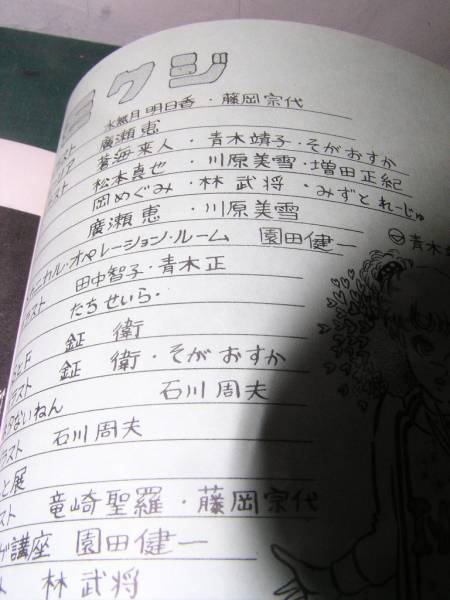 クジ
水無月明日香・藤岡宗代
スト 廣瀬恵
ア 蒼海来人・青木靖子・そがおすか
スト 松本真也・川原美雪・増田正紀
岡めぐみ・林武将・みずとれーじゅ
廣瀬恵・川原美雪
ニカル・オペレーション・ルーム 園田健一
青木
スト 田中智子・青木正
たちせいら・
鉦衛
スト 鉦衛・そがおすか
ないねん 石川周夫
スト 石川周夫
と展
スト 竜崎聖羅・藤岡宗代
講座 園田健一
林武将